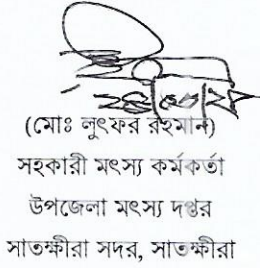 (মোঃ লুৎফর রহমান)
সহকারী মৎস্য কর্মকর্তা
উপজেলা মৎস্য দপ্তর
সাতক্ষীরা সদর, সাতক্ষীরা